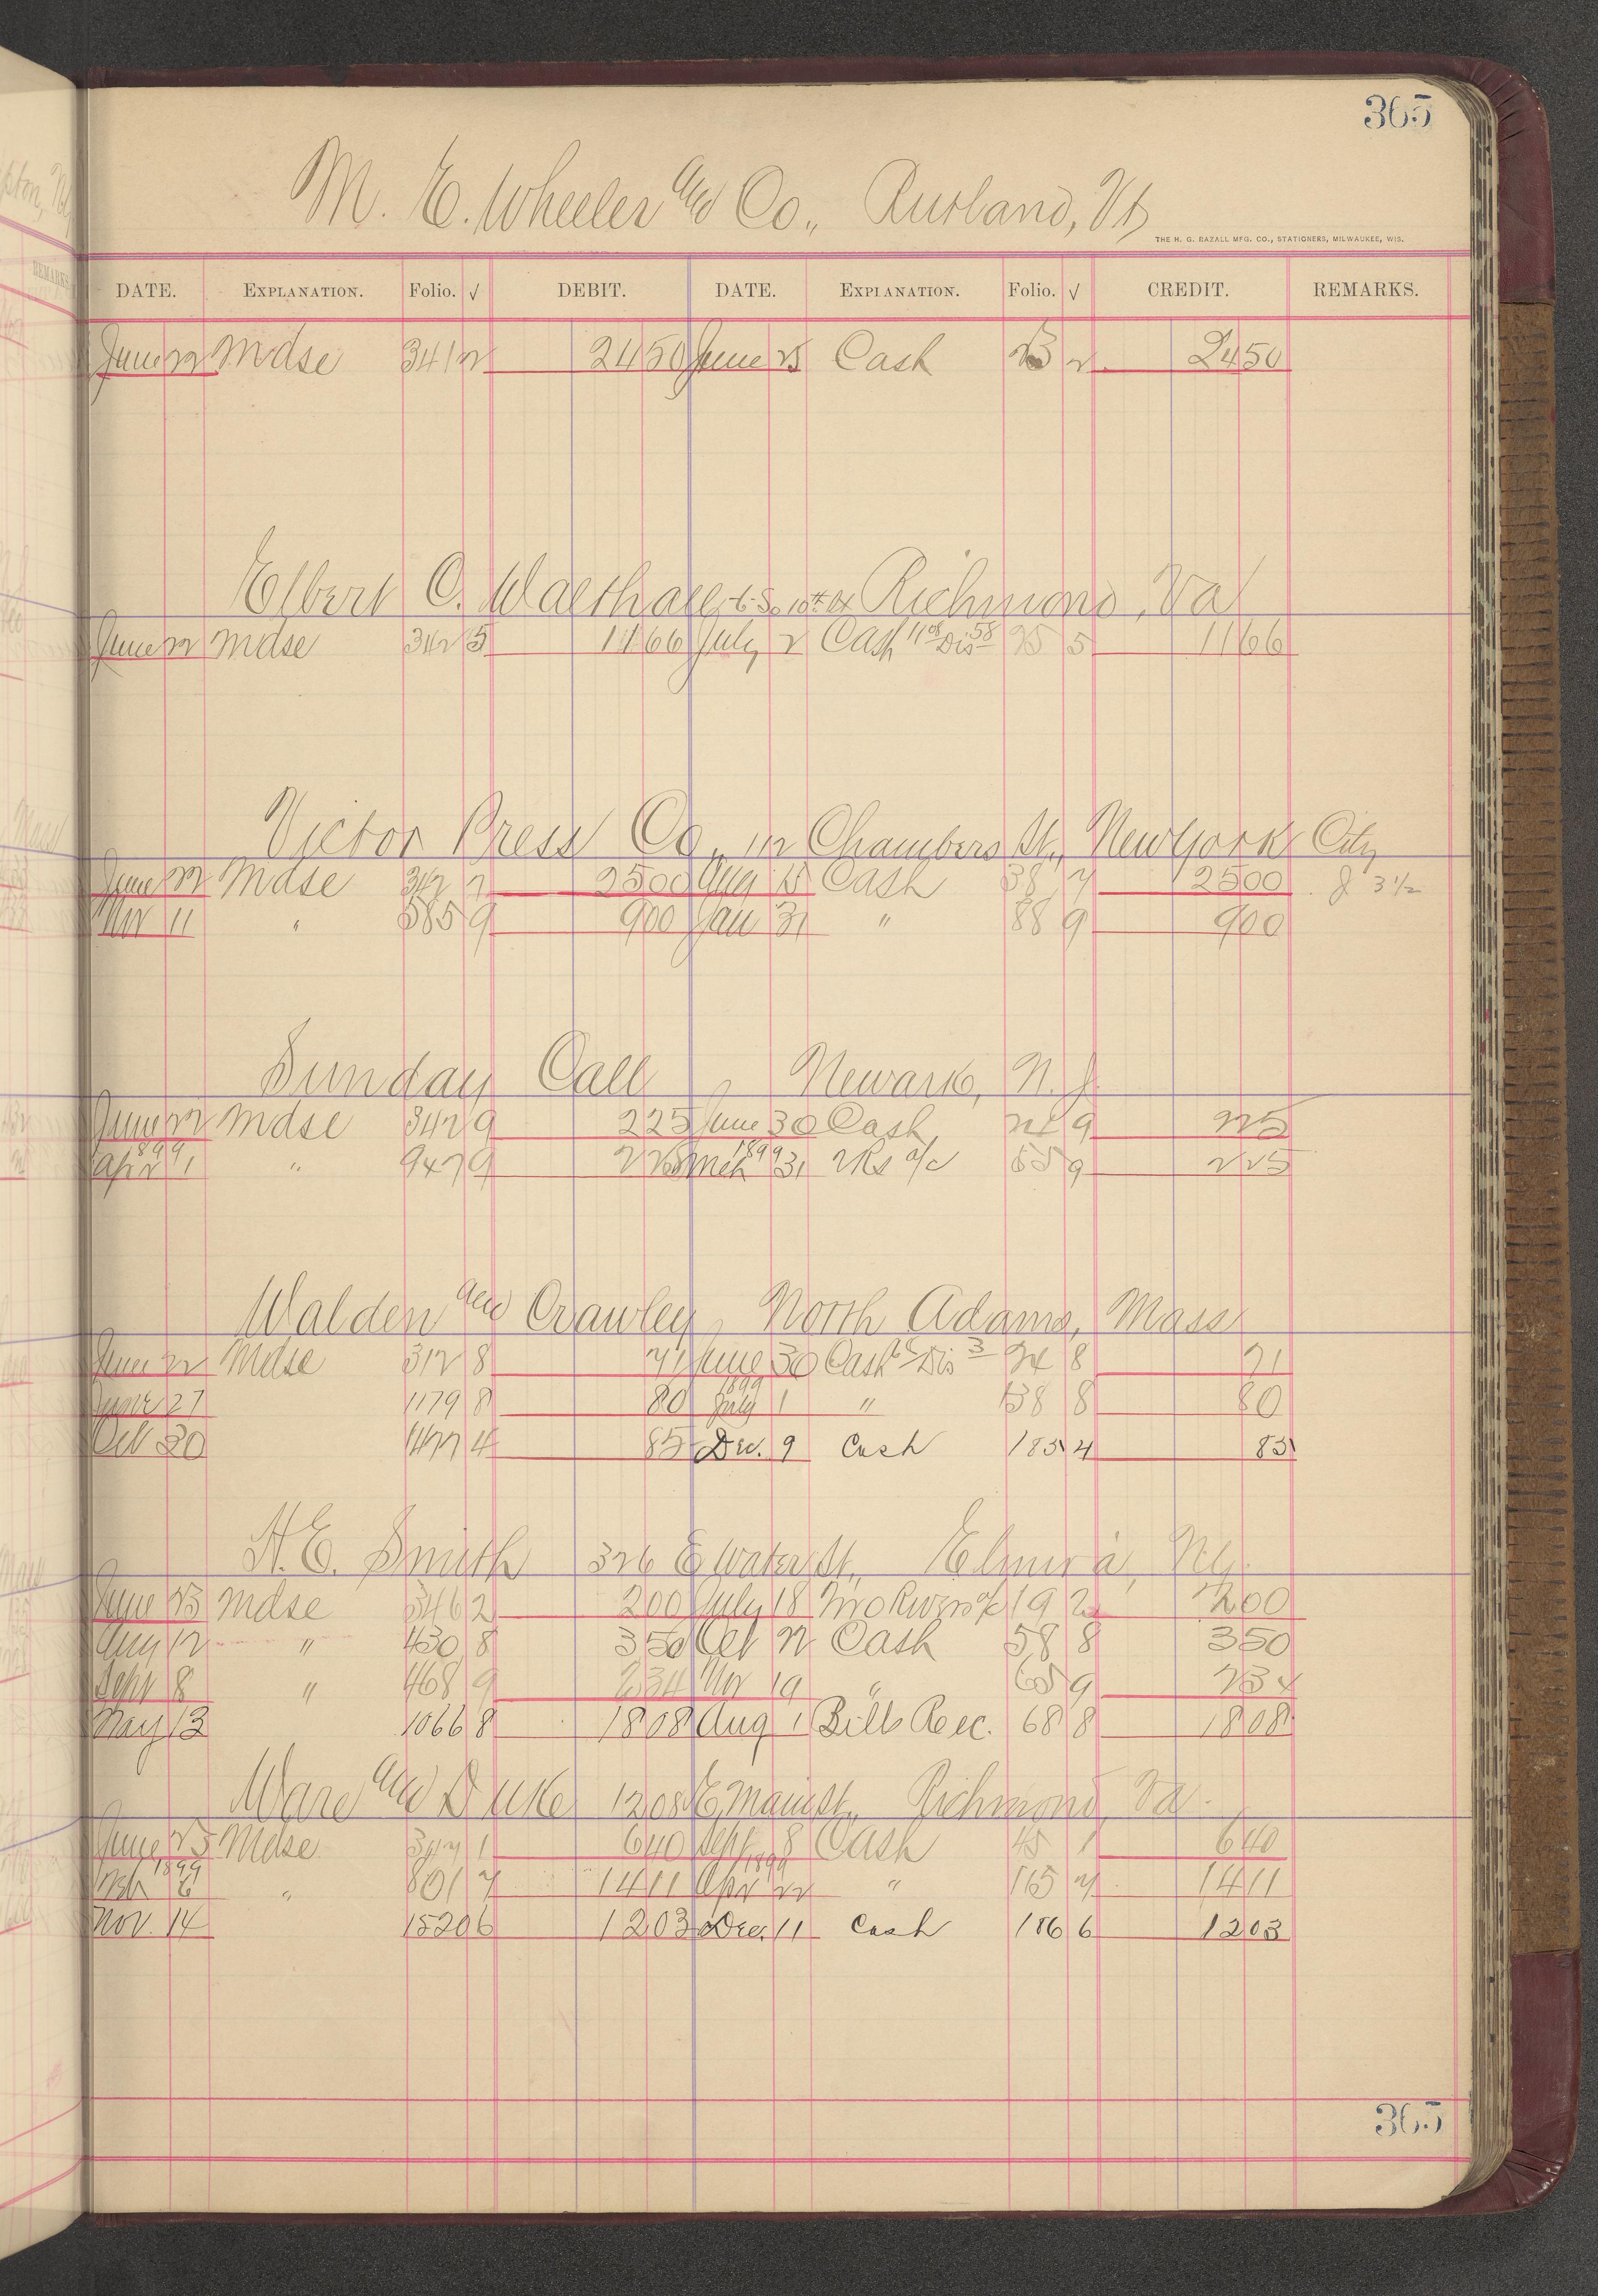 365
M. E. Wheeler and Co., Rutland, Vt
THE H. G. RAZALL MFG. CO., STATIONERS, MILWAUKEE, WIS.
DATE. EXPLANATION. Folio. √ DEBIT. DATE. EXPLANATION. Folio. √ CREDIT. REMARKS.
June 22 Mdse 341 2 2450 June 25 Cash 2 2450
Elbert C. Walthall, 6 So 10th St Richmond, Va
June 22 Mdse 342 5 1166 July 2 Cash 1108 Dis 58 25 5 1166
Victor Press Co., 112 Chambers St., New York City
June 22 Mdse 342 7 2500 Aug 15 Cash 38 7 2500 J 3½
Nov 11 " 585 9 900 Jan 31 " 88 9 900
Sunday Call, Newark, N. J.
June 22 Mdse 342 9 225 June 30 Cash 24 9 225
1899 1899
Apr 1 " 947 9 225 Mch 31 a/c 9 225
Walden and Crawley, North Adams, Mass
June 22 Mdse 312 8 71 June 30 Cash Dis 3 24 8 71
1899
June 27 1179 8 80 July 1 " 138 8 80
Oct 30 1477 4 85 Dec. 9 Cash 185 4 85
H. E. Smith 326 E Water St., Elmira, N.Y.
June 23 Mdse 346 2 200 July 18 19 2 200
Aug 12 " 430 8 350 Oct 22 Cash 58 8 350
Sept 8 " 468 9 234 Nov 19 " 65 9 234
May 13 1066 8 1808 Aug 1 Bills Rec. 68 8 1808
Ware and Duke 1208 E. Main St., Richmond, Va.
June 23 Mdse 347 1 640 Sept 8 Cash 45 1 640
1899 1899
Feb 6 " 801 7 1411 Apr 22 " 115 7 1411
Nov. 14 1520 6 1203 Dec. 11 Cash 186 6 1203
365